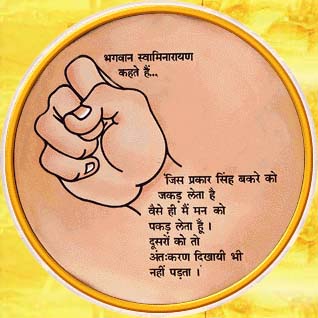 भगवान स्वामिनारायण
कहते हैं...
'जिस प्रकार सिंह बकरे को
जकड़ लेता है
वैसे ही मैं मन को
पकड़ लेता हूँ।
दूसरों को तो
अंतःकरण दिखायी भी
नहीं पड़ता।'